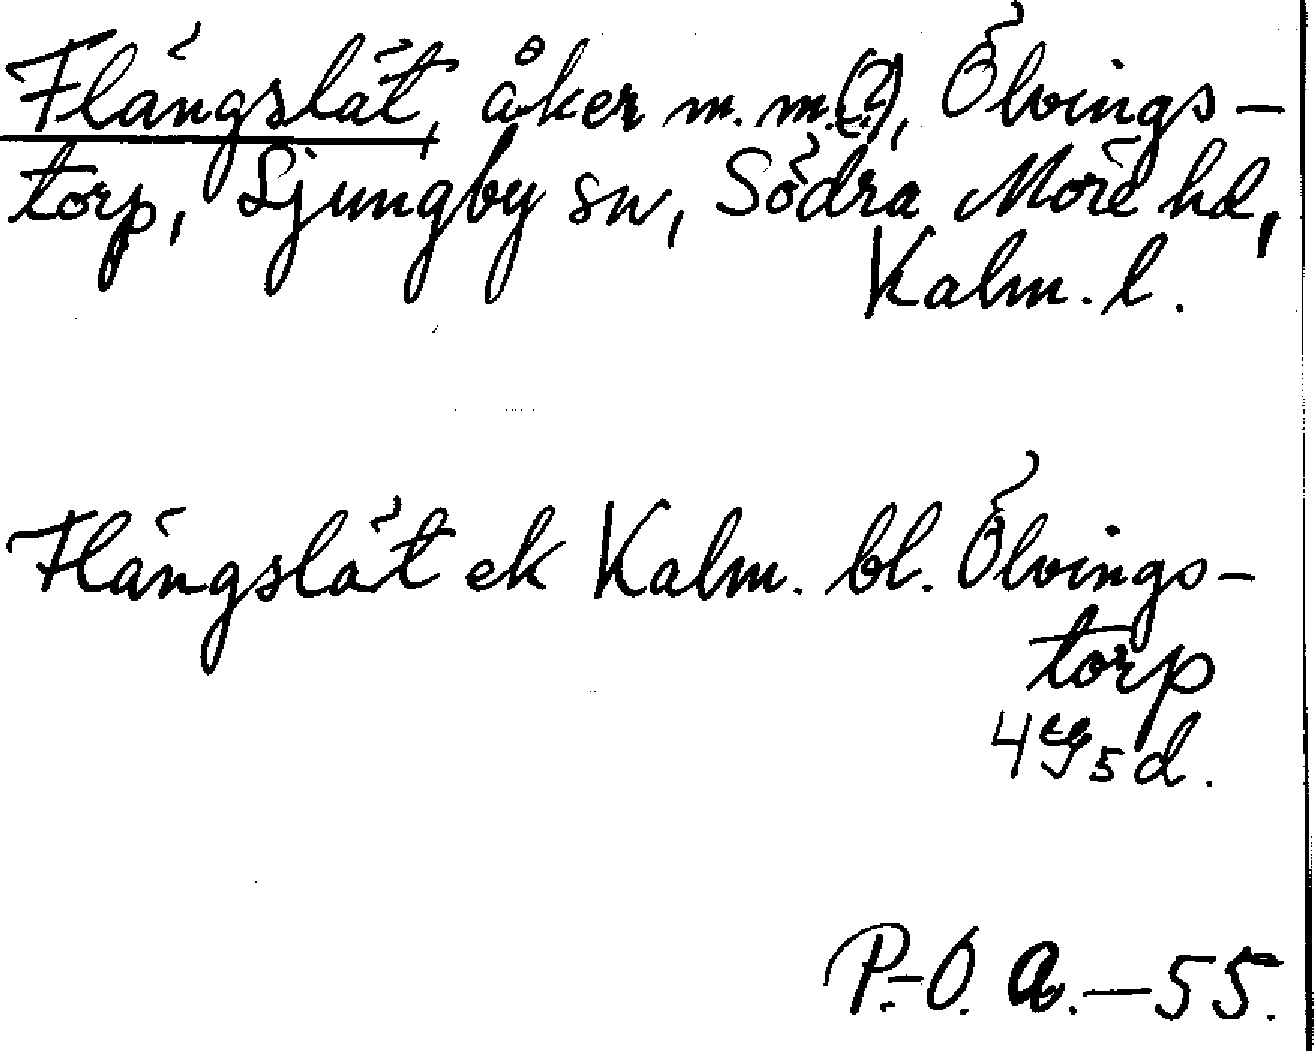 Flängslät, åker m.m.(?), Ölvings-
torp, Ljungby sn, Södra Möre hd,
Kalm. l.
Flängslät ek Kalm. bl. Ölvings-
torp
4 g 5 d.
P.-O. A. - 55.